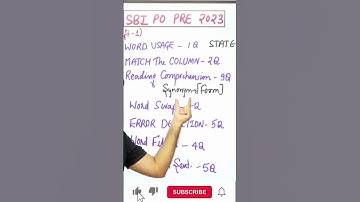 SBI PO PRE 2023
WORD USAGE - 1Q
MATCH The COLUMN - 2Q
Reading Comprehension - 9Q
Synonym [Form]
Word Swap
ERROR DETECTION - 5Q
Word - 4Q
Sent. - 5Q
SUBSCRIBE